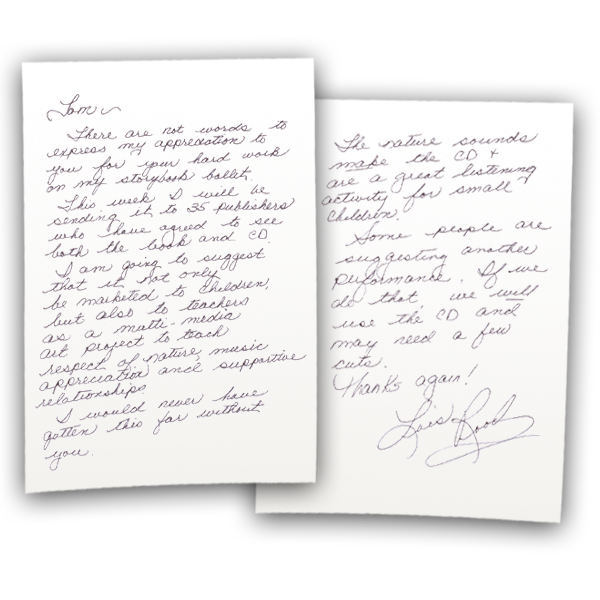 Tom ~
There are not words to
express my appreciation to
you for your hard work
on my storybook ballet.
This week I will be
sending it to 35 publishers
who have agreed to see
both the book and CD.
I am going to suggest
that it not only
be marketed to children,
but also to teachers
as a multi-media
art project to teach
respect of nature, music
appreciation and supportive
relationships.
I would never have
gotten this far without
you.
The nature sounds
make the CD +
are a great listening
activity for small
children!
Some people are
suggesting another
performance. If we
do that, we will
use the CD and
may need a few
cuts.
Thanks again!
Lois Rood